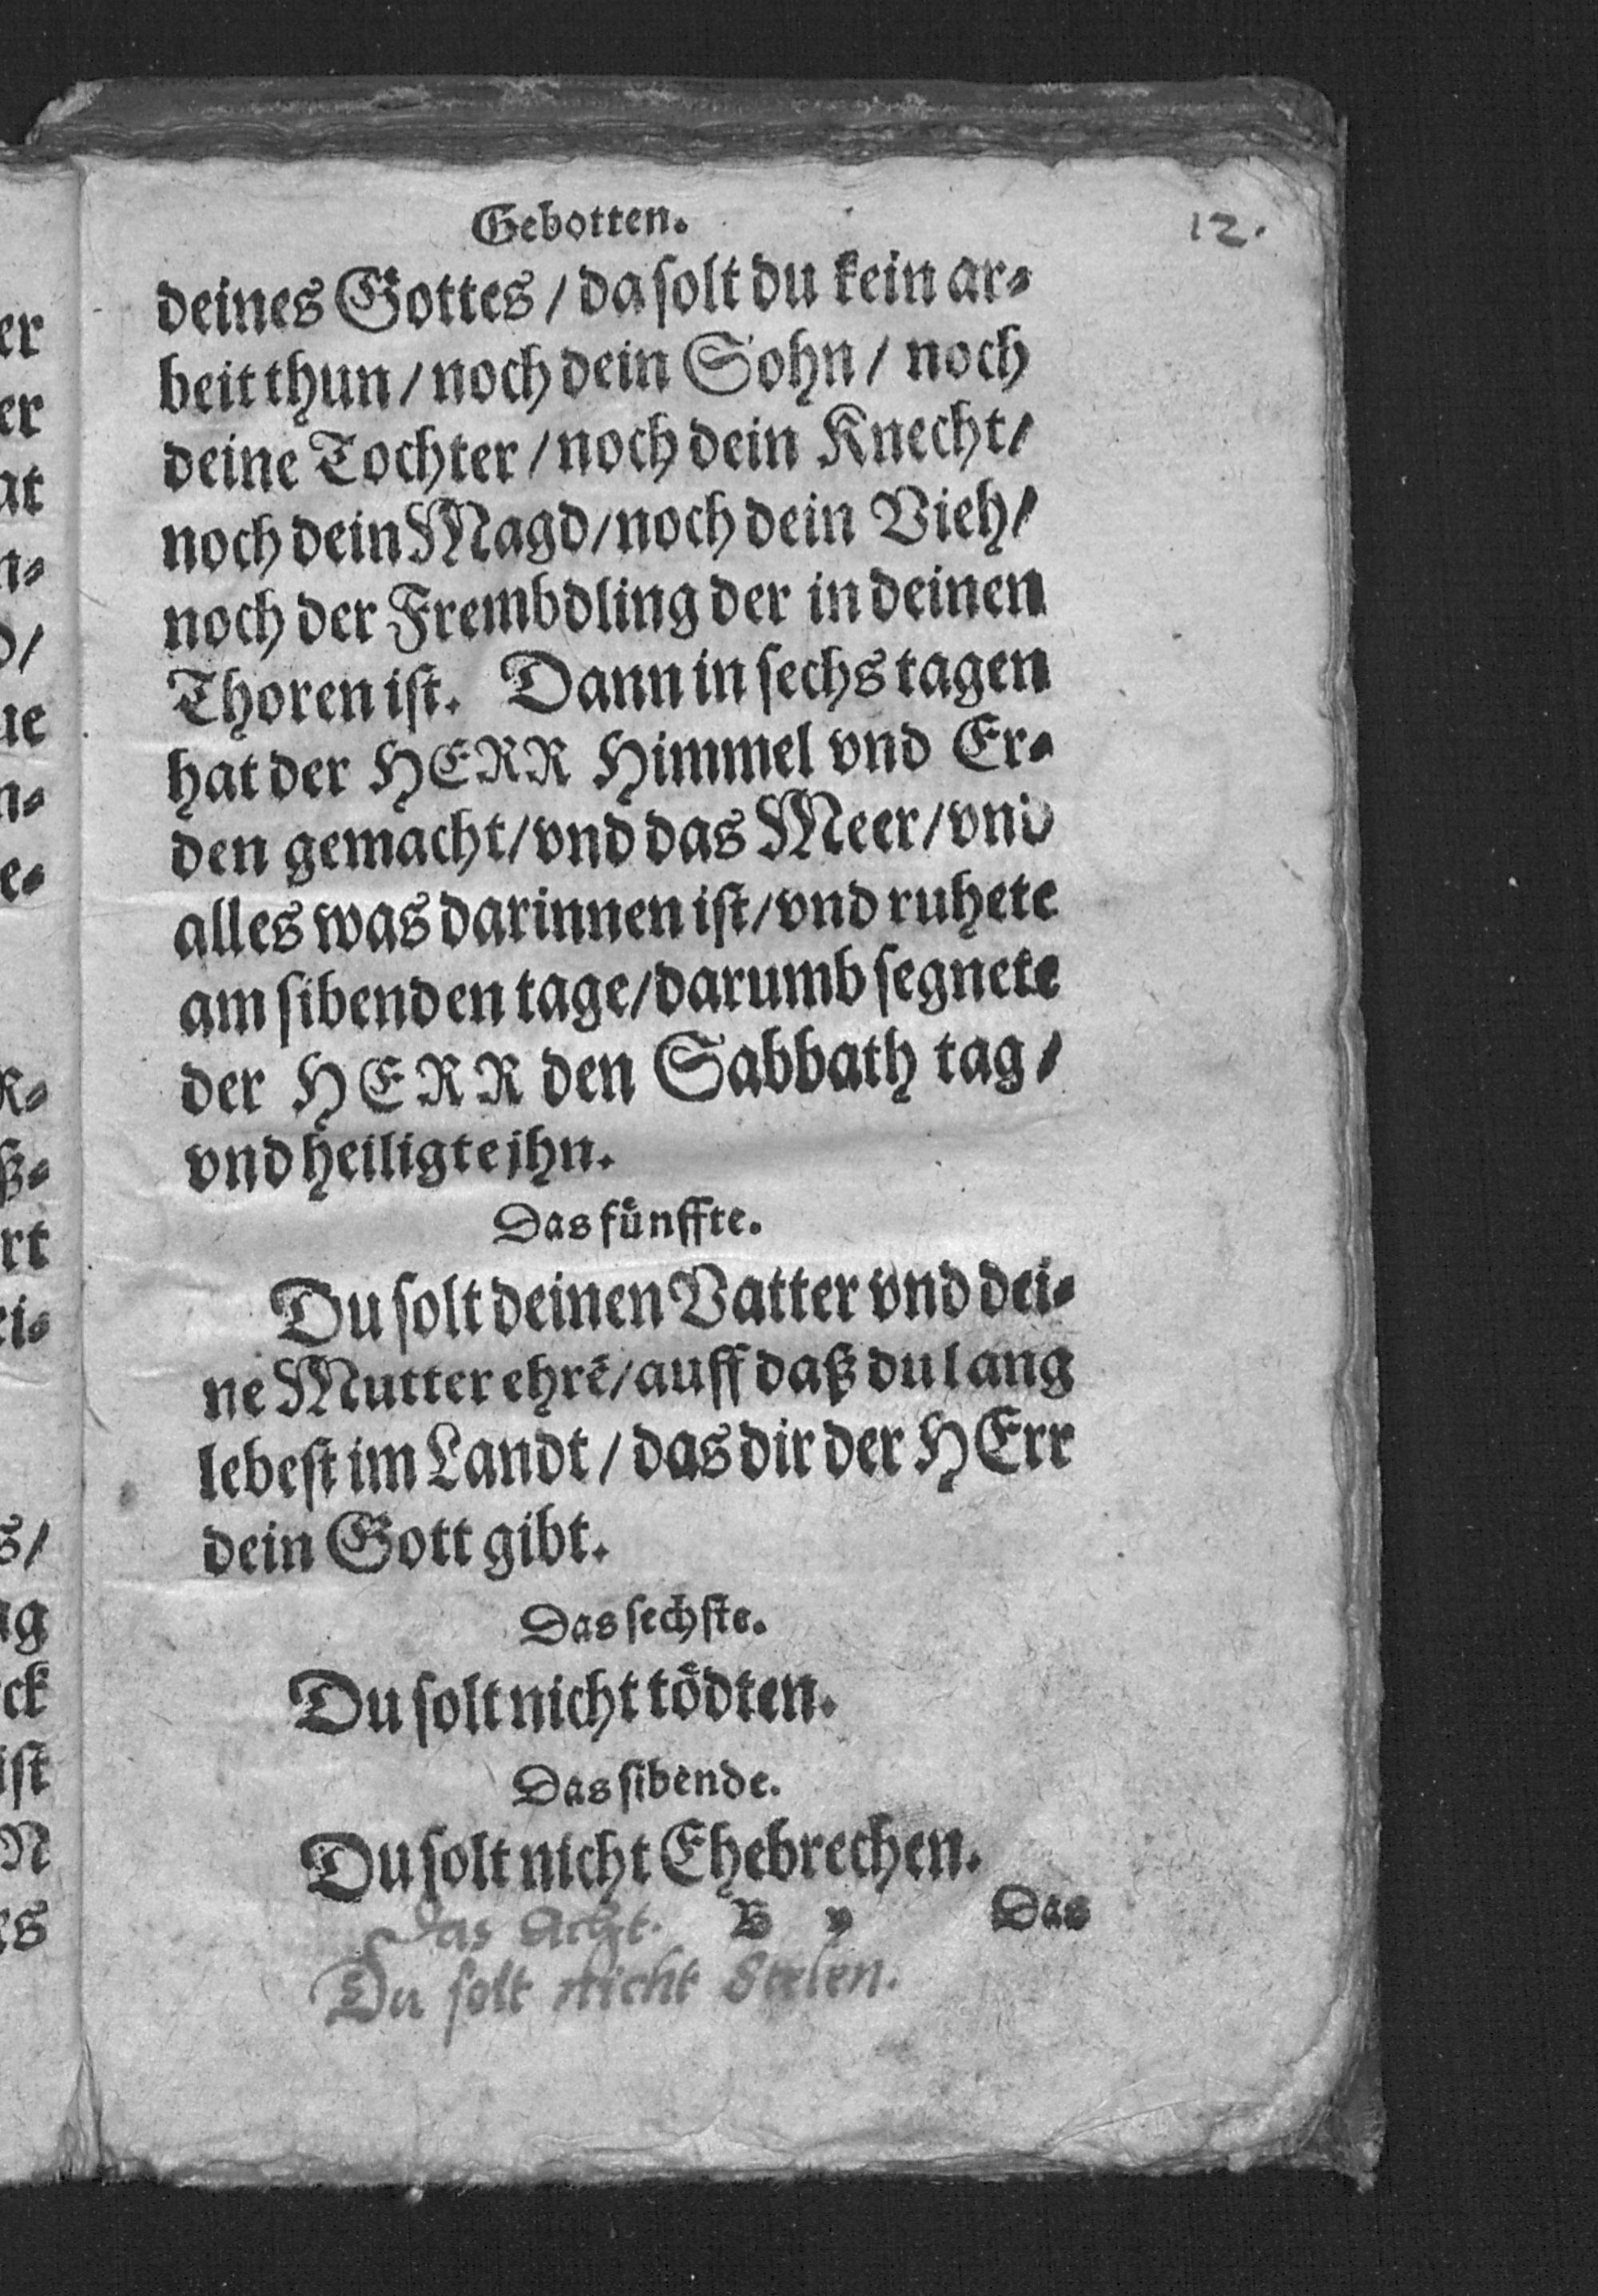 Gebotten.
12.
deines Gottes / da solt du kein ar-
beit thun / noch dein Sohn / noch
deine Tochter / noch dein Knecht /
noch dein Magd / noch dein Vieh /
noch der Frembdling der in deinen
Thoren ist. Dann in sechs tagen
hat der HERR Himmel vnd Er-
den gemacht / vnd das Meer / vnd
alles was darinnen ist / vnd ruhete
am sibenden tage / darumb segnete
der HERR den Sabbath tag /
vnd heiligte jhn.
Das fünffte.
Du solt deinen Vatter vnd dei-
ne Mutter ehrē / auff daß du lang
lebest im Landt / das dir der HErr
dein Gott gibt.
Das sechste.
Du solt nicht tödten.
Das sibende.
Du solt nicht Ehebrechen.
B v Das
Das Acht.
Du solt nicht Stelen.
er
er
at
n-
d/
ue
n-
e-
R-
ß-
rt
ei-
s/
ag
ck
ist
N
es